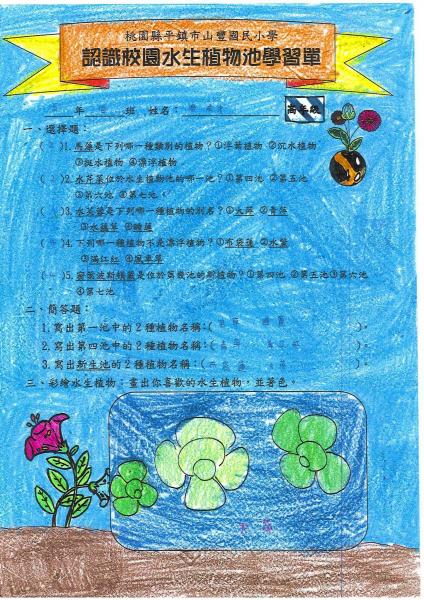 桃園縣平鎮市山豐國民小學
認識校園水生植物池學習單
年 班 姓名:
高年級
一、選擇題:
( )1.馬藻是下列哪一種類別的植物?①浮葉植物 ②沉水植物
③挺水植物 ④漂浮植物
( )2.水芹菜位於水生植物池的哪一池?①第四池 ②第五池
③第六池 ④第七池。
( )3.水芙蓉是下列哪一種植物的別名?①大萍 ②青萍
③水蘊草 ④睡蓮
( )4.下列哪一種植物不是漂浮植物?①布袋蓮 ②水鱉
③滿江紅 ④風車草
( )5. 是位於第幾池的 植物?①第四池 ②第五池③第六池
④第七池
二、簡答題:
1.寫出第一池中的2種植物名稱:( )。
2.寫出第四池中的2種植物名稱:( )。
3.寫出新生池的2種植物名稱:( )。
三、彩繪水生植物:畫出你喜歡的水生植物,並著色。